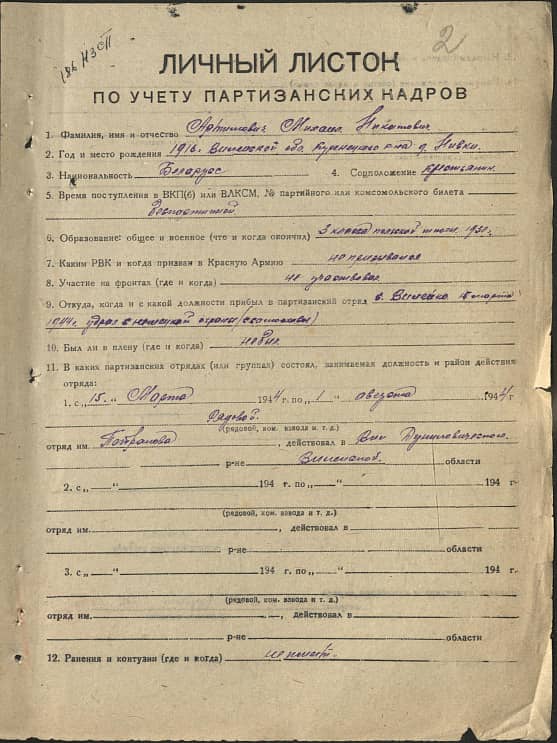 2
ЛИЧНЫЙ ЛИСТОК
ПО УЧЕТУ ПАРТИЗАНСКИХ КАДРОВ
1. Фамилия, имя и отчество Михаил
2. Год и место рождения 1918. д. Нивки.
3. Национальность Беларус 4. Соцположение крестьянин
5. Время поступления в ВКП(б) или ВЛКСМ, № партийного или комсомольского билета
беспартийный
6. Образование: общее и военное (что и когда окончил) 3 класса польской
7. Каким РВК и когда призван в Красную Армию не призывался
8. Участие на фронтах (где и когда) не участвовал
9. Откуда, когда и с какой должности прибыл в партизанский отряд марта
1944г. с немецкой охраны
10. Был ли в плену (где и когда) не был
11. В каких партизанских отрядах (или группах) состоял, занимаемая должность и район действия
отряда:
1. с „15.“ Марта 1944 г. по „1“ августа 1944 г
Рядовой.
(рядовой, ком. взвода и т. д.)
отряд им. , действовал в
р-не области
2. с „ “ 194 г. по „ “ 194 г
(рядовой, ком. взвода и т. д.)
отряд им. , действовал в
р-не области
3. с „ “ 194 г. по „ “ 194 г.
(рядовой, ком. взвода и т. д.)
отряд им. , действовал в
р-не области
12. Ранения и контузии (где и когда) не имеет.